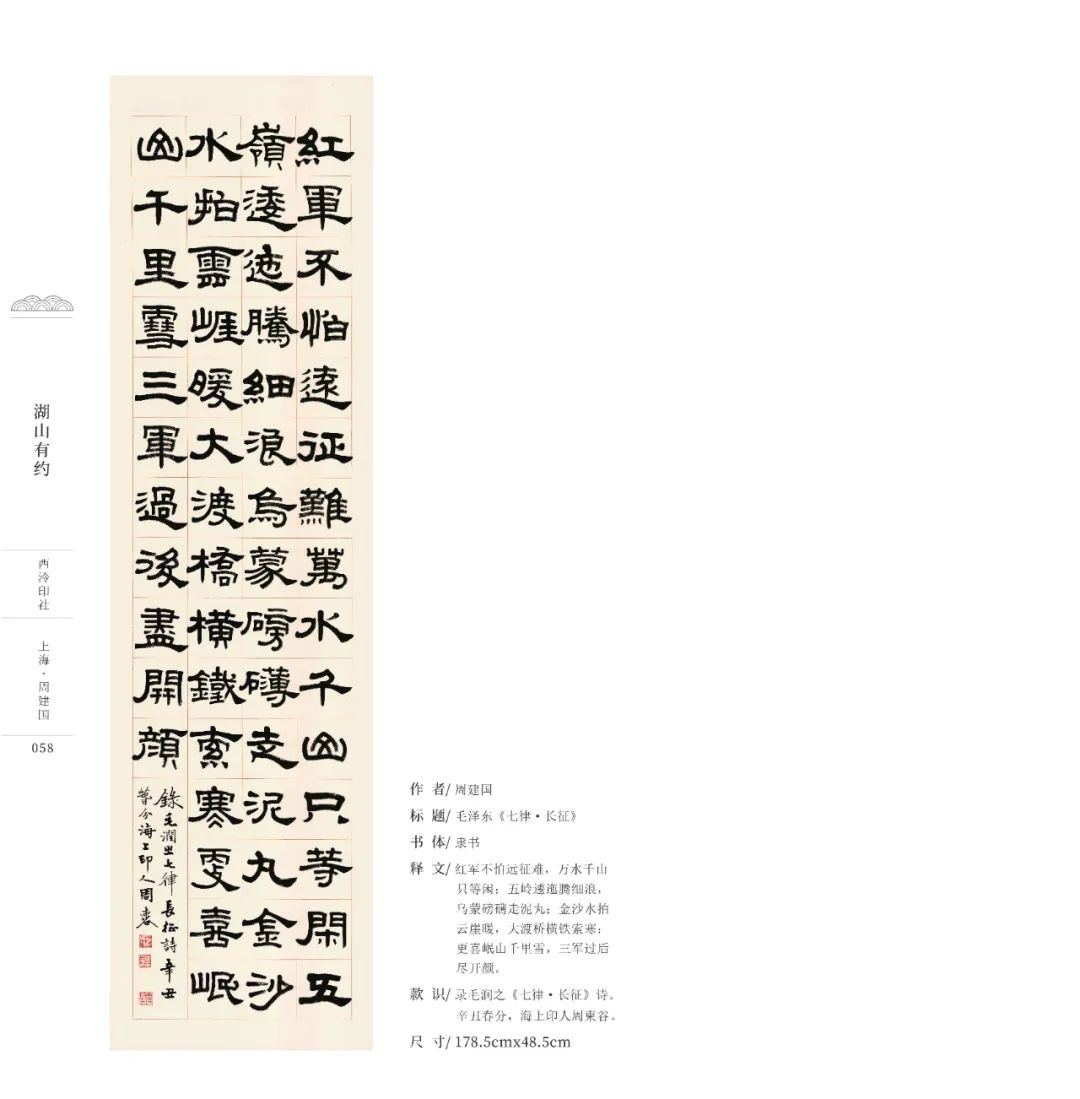 湖山有约
西泠印社
上海·周建国
058
紅軍不怕遠征難萬水千山只等閑五
嶺逶迤騰細浪烏蒙磅礴走泥丸金沙
水拍雲崕暖大渡橋橫鐵索寒更喜岷
山千里雪三軍過後盡開顏
錄毛潤之七律長征詩辛丑
春分海上印人周柬谷
作 者/ 周建国
标 题/ 毛泽东《七律·长征》
书 体/ 隶书
释 文/ 红军不怕远征难，万水千山
只等闲；五岭逶迤腾细浪，
乌蒙磅礴走泥丸；金沙水拍
云崖暖，大渡桥横铁索寒；
更喜岷山千里雪，三军过后
尽开颜。
款 识/ 录毛润之《七律·长征》诗。
辛丑春分，海上印人周柬谷。
尺 寸/ 178.5cmx48.5cm